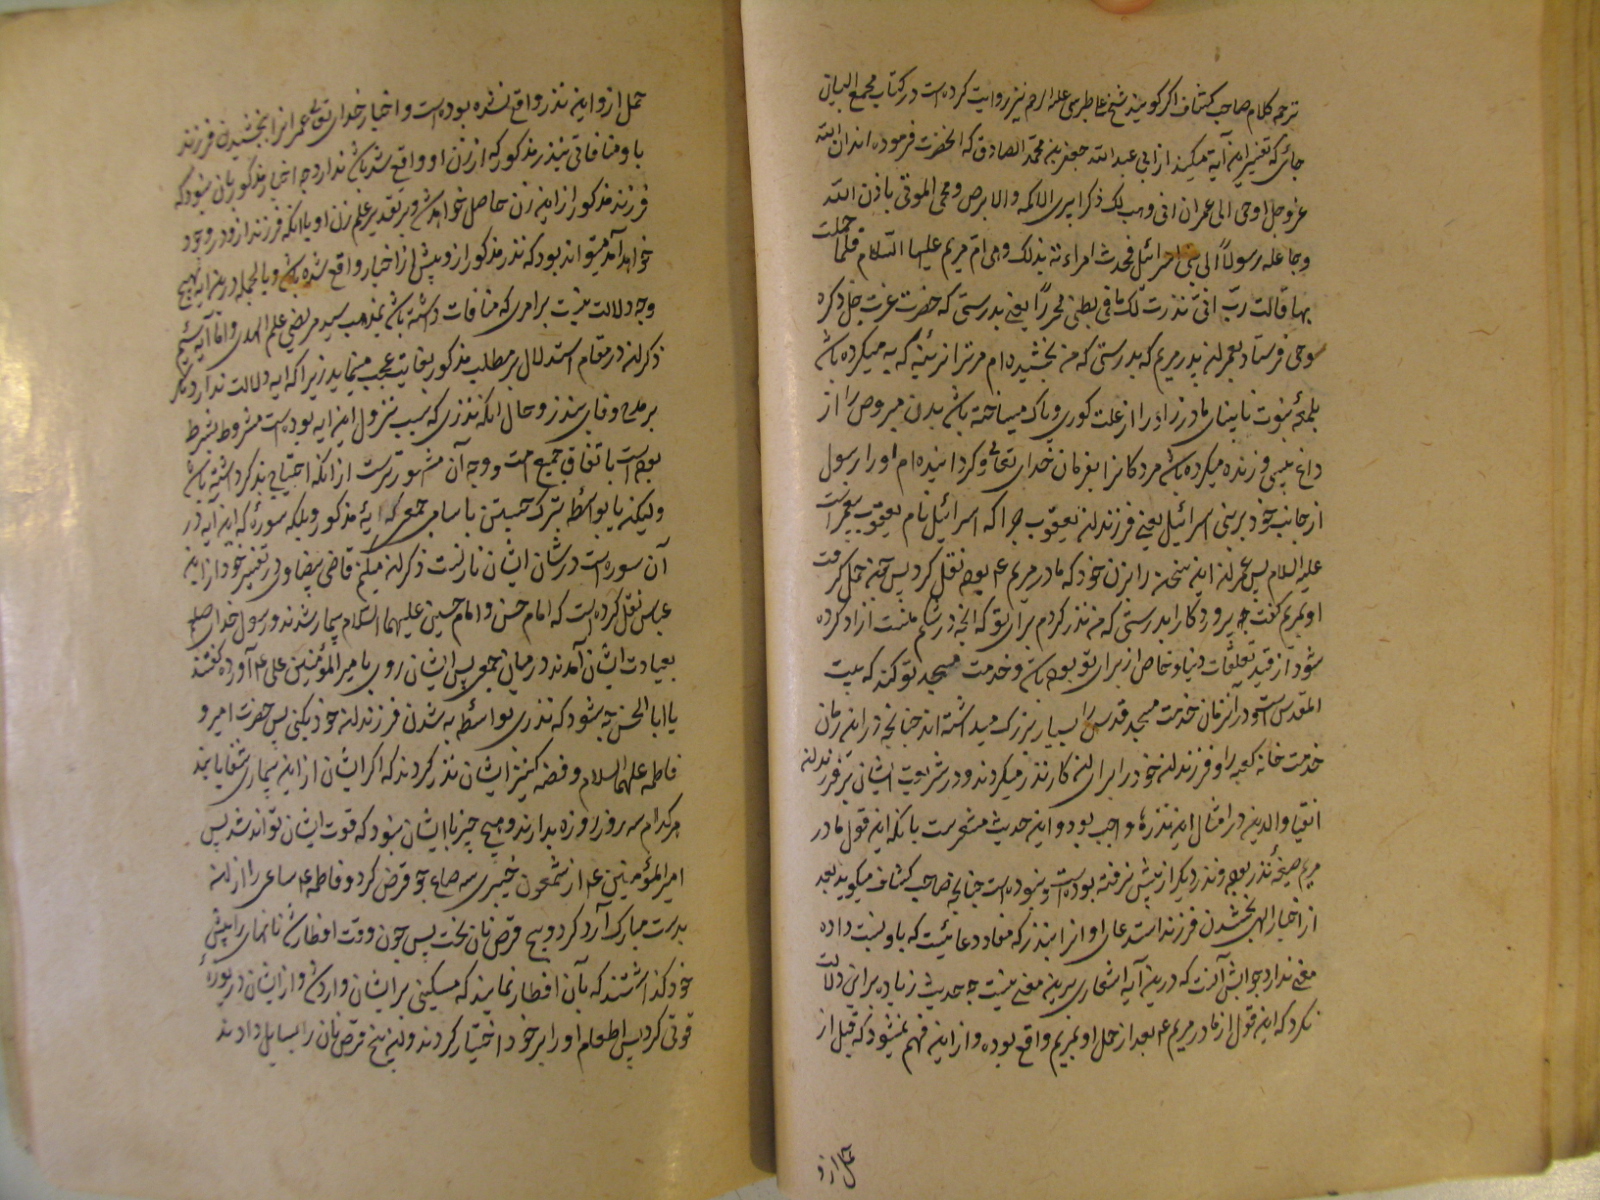 ترجمه کلام صاحب کشاف اگر گویند شیخ طبرسی علیه الرحمه نیز روایت کرده است در کتاب مجمع البیان
جائی که تفسیر این آیة میکند از ابی عبد الله جعفر بن محمد الصادق که آنحضرت فرموده اند ان الله
عز و جل اوحی الی عمران انی وهب لک ذکرا یبری الاکمه والابرص و محی الموتی باذن الله
وجاعله رسولاً الی بنی اسرائیل فحدث امراءته بذلک وهی ام مریم علیها السلام فلما حملت
بها قالت رب انی نذرت لک ما فی بطنی محرراً یعنی بدرستی که حضرت عزت جل ذکره
وحی فرستاد بعمران پدر مریم که بدرستی که من بخشیده ام مر ترا نرینه که به میکرده باشد
نابینای مادرزاد را از علت کوری و پاک میساخته باشد بدن مبروص را از
داغ پیسی و زنده میکرده باشد مردگانرا بفرمان خدای تعالی و گردانیده ام او را رسول
از جانب خود بر بنی اسرائیل یعنی فرزندان یعقوب چرا که اسرائیل نام یعقوب پیغمبر است
علیه السلام پس عمران این سخن را بزن خود که مادر مریم ع بود نقل کرد پس چون حمل گرفت
او بمریم گفت پروردگارا بدرستی که من نذر کردم برای تو که آنچه در شکم منست آزاد کرده
شود از قید تعلقات دنیا و خاص از برای تو بوده باشد و خدمت مسجد تو کند که بیت
المقدس است و در آنزمان خدمت مسجد قدس را بسیار بزرگ میداشته اند چنانچه در این زمان
خدمت خانه کعبه را و فرزندان خود را برای این کار نذر میکردند و در شریعت ایشان بر فرزندان
انقیاد والدین در امثال این نذرها واجب بود و این حدیث مشعرست بانکه این قول مادر
مریم صیغهٔ نذر بوده و نذر دیگر از پیش نرفته بوده است و نبوده است چنانچه صاحب کشاف میگوید بعد
از اخبار الهی بخشیدن فرزند استدعای او انرا بنذر که مفاد دعائیست که باو نسبت داده
معنی ندارد جوابش آنست که درین آیه اشعاری برین معنی نیست چه حدیث زیاده بر این دلالت
نکرد که این قول از مادر مریم ع بعد از حمل او بمریم واقع بوده و از این فهم نمیشود که قبل از
حمل از و
حمل از و این نذر واقع نشده بوده است و اخبار خدای تعالی عمرانرا بخشیدن فرزند
باو منافاتی بنذر مذکور که از زن او واقع شد باشد ندارد چه اخبار مذکور بان نبود که
فرزند مذکور از این زن حاصل خواهد شد و بر تقدیر علم زن او باانکه فرزند از و در وجود
خواهد آمد میتواند بود که نذر مذکور از و پیش از اخبار واقع شده باشد و بالجمله درین آیه بهیچ
وجه دلالت نیست بر امری که منافات داشته باشد بمذهب سید مرتضی علم الهدی و اما آیه
ذکر آن در مقام استدلال بر مطلب مذکور بغایت عجب مینماید زیرا که آیه دلالت ندارد مگر
بر مدح وفای بنذر و حال آنکه نذری که سبب نزول این آیه بوده است مشروط بشرط
بوده است باتفاق جمیع امت و وجه آن مشهورترست از آنکه احتیاج بذکر داشته باشد
ولیکن ما بواسطه تبرک جستن باسامی جمعی که آیهٔ مذکور و بلکه سورهٔ که این آیه در
آن سوره است در شان ایشان نازلست ذکر آن میکنیم قاضی بیضاوی در تفسیر خود از ابن
عباس نقل کرده است که امام حسن و امام حسین علیهما السلام بیمار شدند و رسول خدای صلعم
بعیادت ایشان آمدند در میان جمعی پس ایشان روی بامیرالمؤمنین علی ع آورده گفتند
یا ابا الحسن چه بشود که نذری بواسطه به شدن فرزندان خود بکنی پس حضرت امیر و
فاطمه علیهما السلام و فضه کنیز ایشان نذر کردند که اگر ایشان از این بیماری شفا یابند
هرکدام سه روز روزه بدارند و هیچ چیز با ایشان نبود که قوت ایشان تواند شد پس
امیر المؤمنین ع از شمعون خیبری سه صاع جو قرض کرد و فاطمه ع صاعی را از آن
بدست مبارک آرد کرد و پنج قرص نان پخت پس چون وقت افطار شد نانهای را پیش
خود گذاشتند که بآن افطار نمایند که مسکینی بر ایشان وارد شد و از ایشان دریوزهٔ
قوتی کرد پس اطعام او را بر خود اختیار کردند و این پنج قرص نان را بسایل دادند